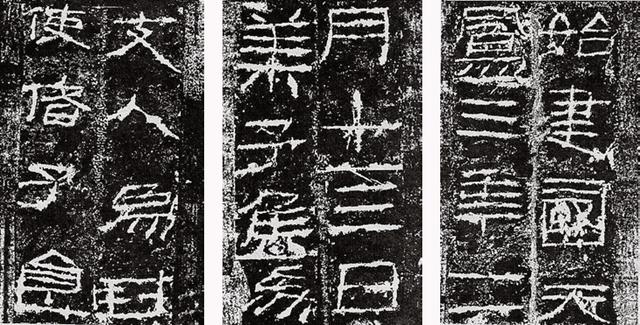 始建國天
鳳三年二
月十三日
萊子侯為
支人為封
使偖子食